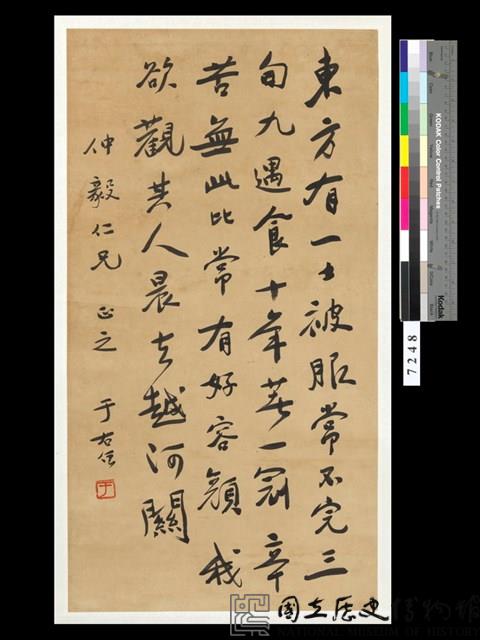 東方有一士被服常不完三
旬九遇食十年著一冠辛
苦無此比常有好容顏我
欲觀其人晨去越河關
仲毅仁兄 正之 于右任
KODAK Color Control Patches
Kodak
7248
國立歷史博物館
NATIONAL MUSEUM OF HISTORY